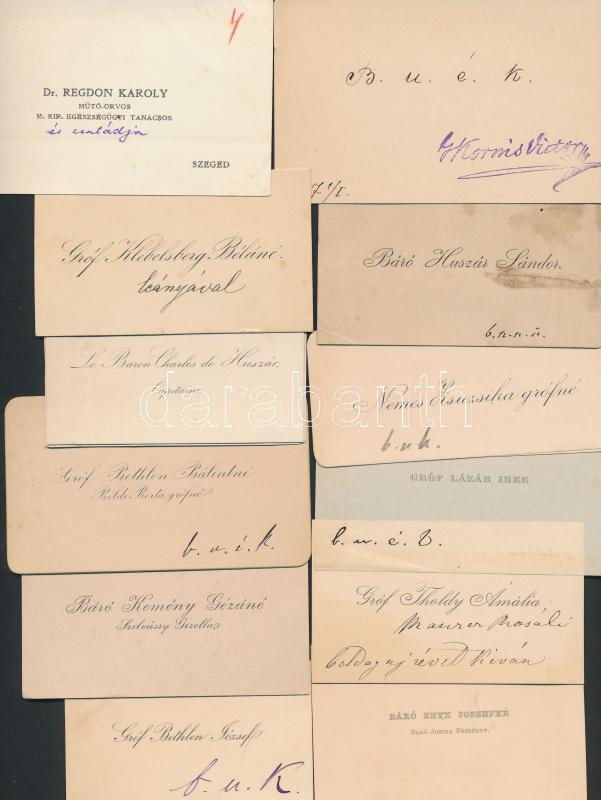 4
Dr. REGDON KAROLY
MŰTŐ-ORVOS
M. KIR. EGÉSZSÉGÜGYI TANÁCSOS
és családja
SZEGED
B. u. é. k.
Kornis Victor
Gróf Klebelsberg Béláné.
leányával
Báró Huszár Sándor.
Le Baron Charles de Huszár,
Nemes Zsuzsika grófné
b. u. k.
darabanth
Gróf Bethlen Bálintné
Béldi Berta grófnő
b. u. é. k.
GRÓF LÁZÁR IMRE
b. u. é. k.
Báró Kemény Gézáné
Szilvássy Gizella
Gróf Tholdy Amália
Boldog uj évet kiván
Gróf Bethlen József
b. u. K.
BÁRÓ HNYK JOZSEFNÉ
BARÓ JOSIKA ERZSÉBET.